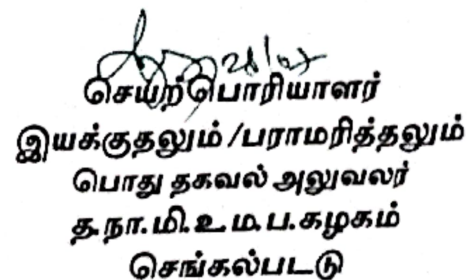 செயற்பொறியாளர்
இயக்குதலும் /பராமரித்தலும்
பொது தகவல் அலுவலர்
த.நா.மி.உ.ம.ப.கழகம்
செங்கல்படடு